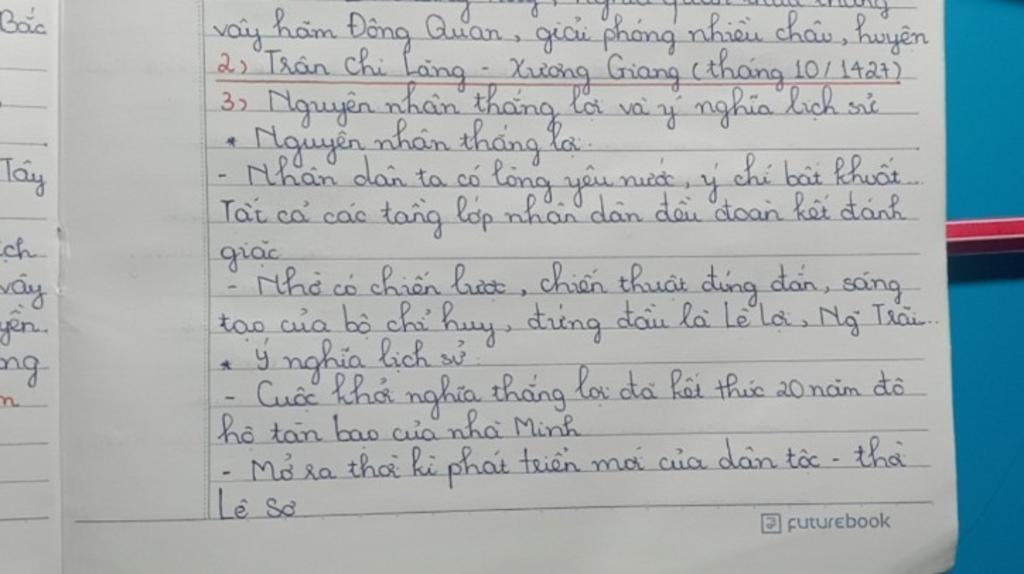 Bắc
Tây
ịch
vây
yền.
ng
n
vây hãm Đông Quan, giải phóng nhiều châu, huyện
2, Trận Chi Lăng - Xương Giang (tháng 10/1427)
3, Nguyên nhân thắng lợi và ý nghĩa lịch sử
* Nguyên nhân thắng lợi:
- Nhân dân ta có lòng yêu nước, ý chí bất khuất...
Tất cả các tầng lớp nhân dân đều đoàn kết đánh
giặc
- Nhờ có chiến lược, chiến thuật đúng đắn, sáng
tạo của bộ chỉ huy, đứng đầu là Lê Lợi, Ng Trãi...
* Ý nghĩa lịch sử:
- Cuộc khởi nghĩa thắng lợi đã kết thúc 20 năm đô
hộ tàn bạo của nhà Minh
- Mở ra thời kì phát triển mới của dân tộc - thời
Lê Sơ
FUTUREBOOK